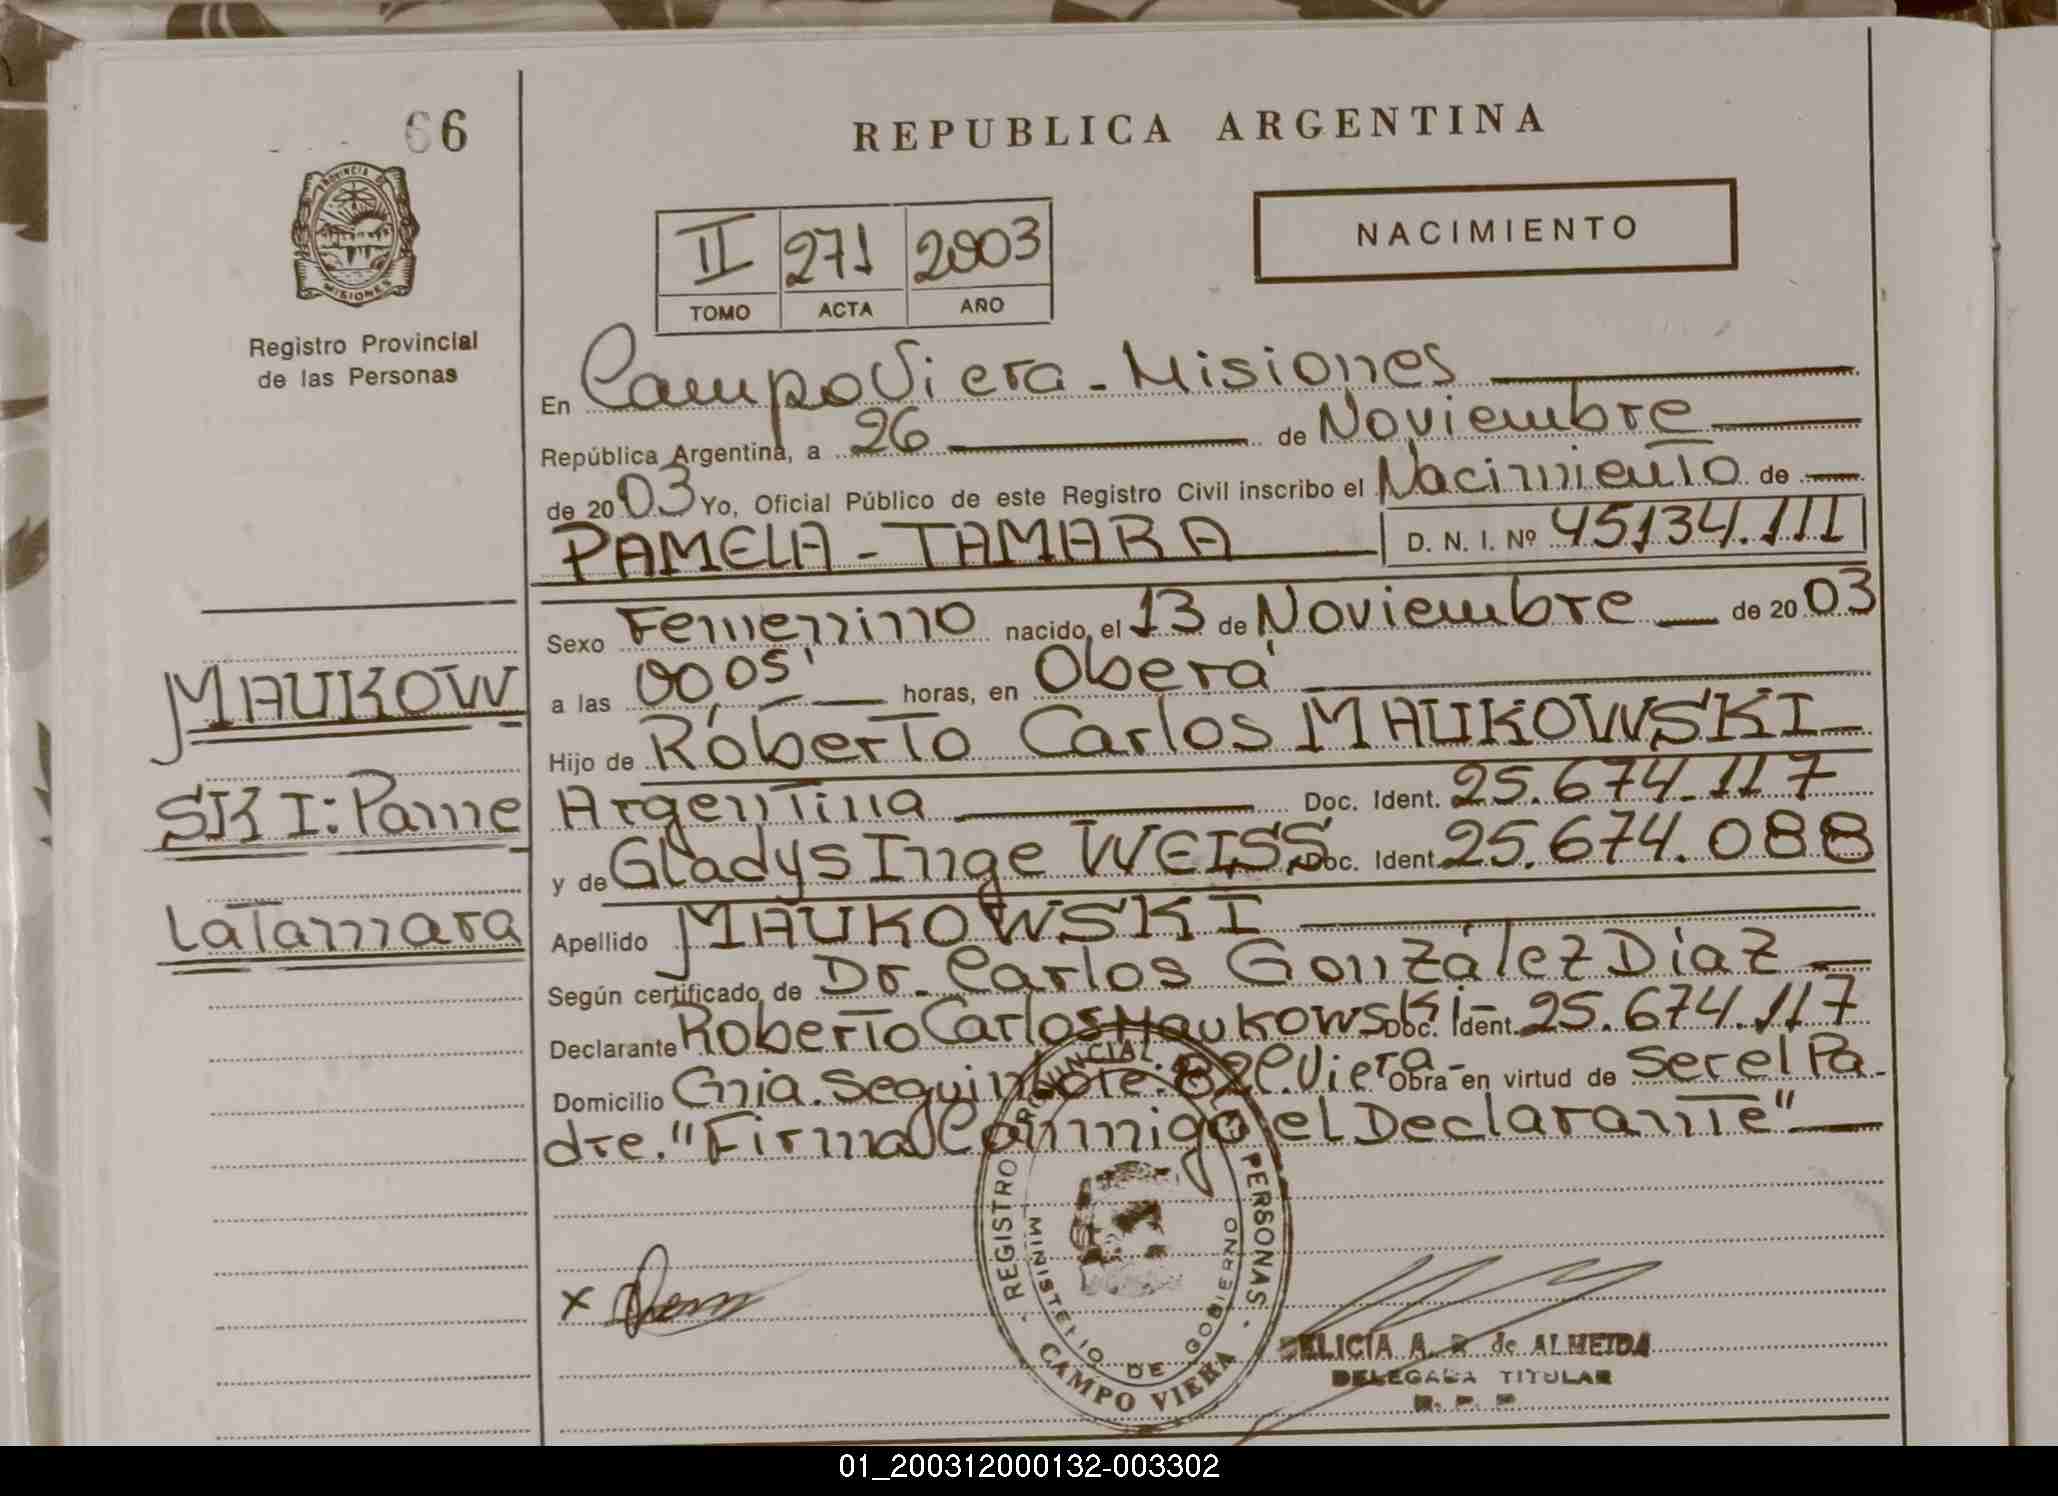 66
REPUBLICA ARGENTINA
PROVINCIA DE
MISIONES
Registro Provincial
de las Personas
II 271 2003
TOMO ACTA AÑO
NACIMIENTO
En Campo Viera - Misiones
República Argentina, a 26 de Noviembre
de 2003 Yo, Oficial Público de este Registro Civil inscribo el Nacimiento de
PAMELA - TAMARA D. N. I. Nº 45134.111
Sexo Femenino nacido, el 13 de Noviembre de 2003
a las 00,05' horas, en Oberá
Hijo de Roberto Carlos MAUKOWSKI
Argentina Doc. Ident. 25.674.117
y de Gladys Inge WEISS Doc. Ident. 25.674.088
Apellido MAUKOWSKI
Según certificado de Dr. Carlos González Díaz
Declarante Roberto Carlos Maukowski - Doc. Ident. 25.674.117
Domicilio Cnia. Seguin Lote: 82 C. Viera - Obra en virtud de ser el Pa
dre. "Firma Conmigo el Declarante"
MAUKOW
SKI: Pame
la Tamara
REGISTRO PROVINCIAL DE LAS PERSONAS
MINISTERIO DE GOBIERNO
CAMPO VIERA
x
DELICIA A. R. de ALMEIDA
DELEGADA TITULAR
R. P. P.
01_200312000132-003302